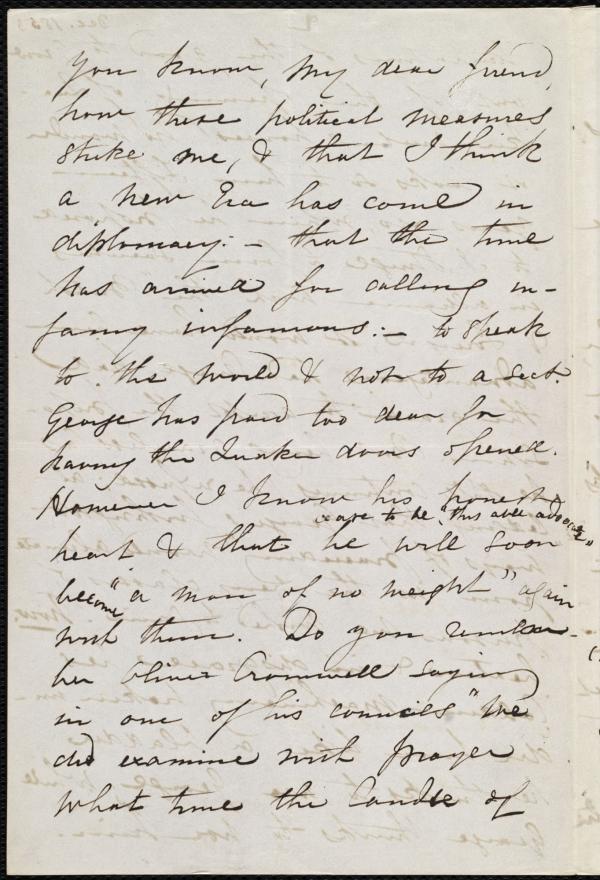 You know, my dear friend,
how these political measures
strike me, & that I think
a new Era has come in
diplomacy: – that the time
has arrived for calling in-
famy infamous: – to speak
to the world & not to a sect.
George has paid too dear for
having the Quaker doors opened.
However I know his honest
cease to be "this able advocate"
heart & that he will soon
become "a man of no weight" again
with them. Do you remem-
ber Oliver Cromwell saying
in one of his councils "We
did examine with prayer
what time the Candle of